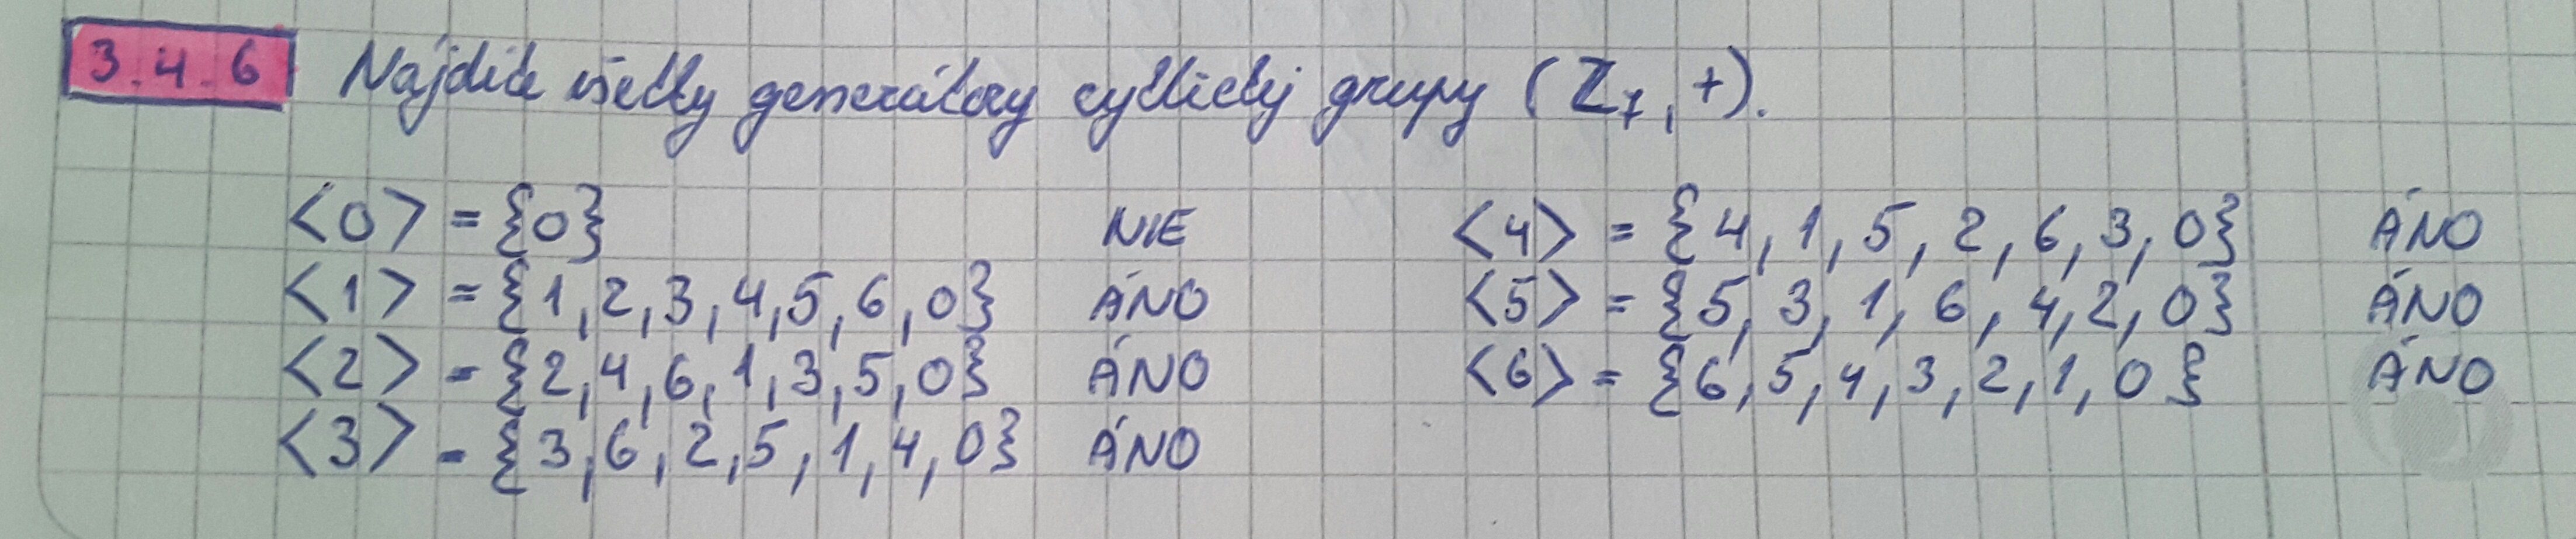 3.4.6 Nájdite všetky generátory cyklickej grupy (Z₇, +).
<0> = {0} NIE
<1> = {1, 2, 3, 4, 5, 6, 0} ÁNO
<2> = {2, 4, 6, 1, 3, 5, 0} ÁNO
<3> = {3, 6, 2, 5, 1, 4, 0} ÁNO
<4> = {4, 1, 5, 2, 6, 3, 0} ÁNO
<5> = {5, 3, 1, 6, 4, 2, 0} ÁNO
<6> = {6, 5, 4, 3, 2, 1, 0} ÁNO